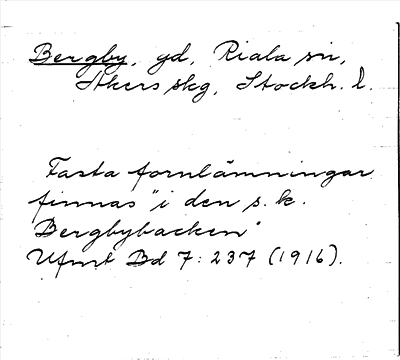 Bergby, gd, Riala sn,
Åkers skg, Stockh. l.
Fasta fornlämningar
finnas "i den s.k.
Bergbybacken"
Ufmt Bd 7: 237 (1916).